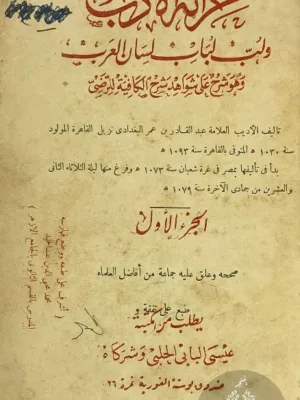 خزانة الأدب
ولب لباب لسان العرب
وهو شرح على شواهد شرح الكافية للرضي
تأليف الأديب العلامة عبد القادر بن عمر البغدادي نزيل القاهرة المولود
سنة ١٠٣٠ ه المتوفى بالقاهرة سنة ١٠٩٣ ه
بدأ في تأليفها بمصر في غرة شعبان سنة ١٠٧٣ وفرغ منها ليلة الثلاثاء الثاني
والعشرين من جمادى الآخرة سنة ١٠٧٩
الجزء الأول
صححه وعلق عليه جماعة من أفاضل العلماء
طبع على نفقة و
يطلب من مكتبة
عيسى البابي الحلبي وشركاه
صندوق بوستة الغورية نمرة ٢٦
أشرف على طبعه ووضع فهارسه
محمد محيي الدين عبد الحميد
المدرس بالقسم الثانوي بالجامع الأزهر